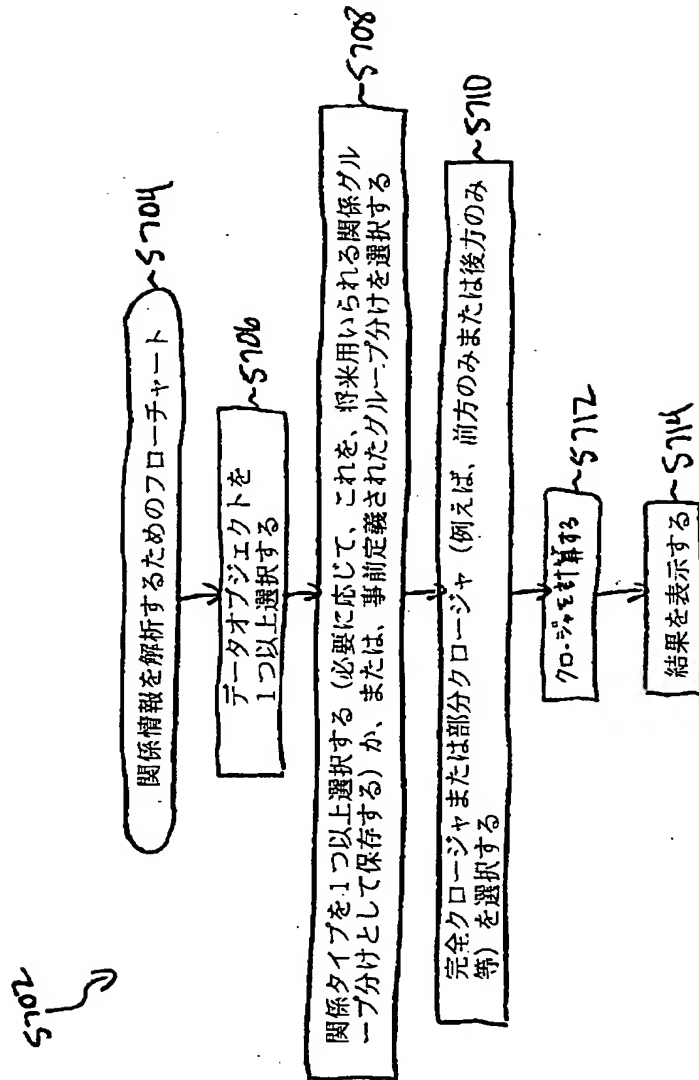 5702
関係情報を解析するためのフローチャート
5704
データオブジェクトを
1つ以上選択する
5706
関係タイプを1つ以上選択する(必要に応じて、これを、将来用いられる関係グル
ープ分けとして保存する)か、または、事前定義されたグループ分けを選択する
5708
完全クロージャまたは部分クロージャ(例えば、前方のみまたは後方のみ
等)を選択する
5710
クロージャを計算する
5712
結果を表示する
5714